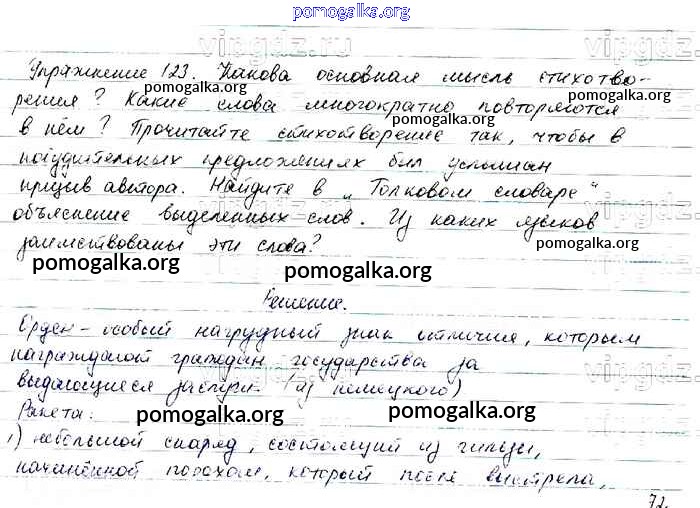 pomogalka.org
vipgdz.ru
Упражнение 123. Какова основная мысль стихотво-
pomogalka.org pomogalka.org
рения? Какие слова многократно повторяются
pomogalka.org
в нём? Прочитайте стихотворение так, чтобы в
побудительных предложениях был услышан
призыв автора. Найдите в „Толковом словаре“
объяснение выделенных слов. Из каких языков
pomogalka.org
заимствованы эти слова?
pomogalka.org pomogalka.org
Решение.
Орден – особый нагрудный знак отличия, которым
награждают граждан государства за
выдающиеся заслуги. (из немецкого)
Ракета:
pomogalka.org pomogalka.org
1) небольшой снаряд, состоящий из гильзы,
начинённой порохом, который после выстрела,
72.
pomogalka.org